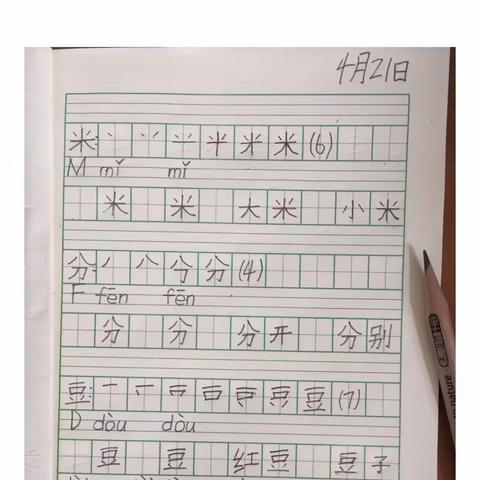 4月21日
米: 丶 丷 䒑 半 米 米 (6)
M mǐ mǐ
米 米 大米 小米
分: 丿 八 分 分 (4)
F fēn fēn
分 分 分开 分别
豆: 一 豆 (7)
D dòu dòu
豆 豆 红豆 豆子
HB
nature